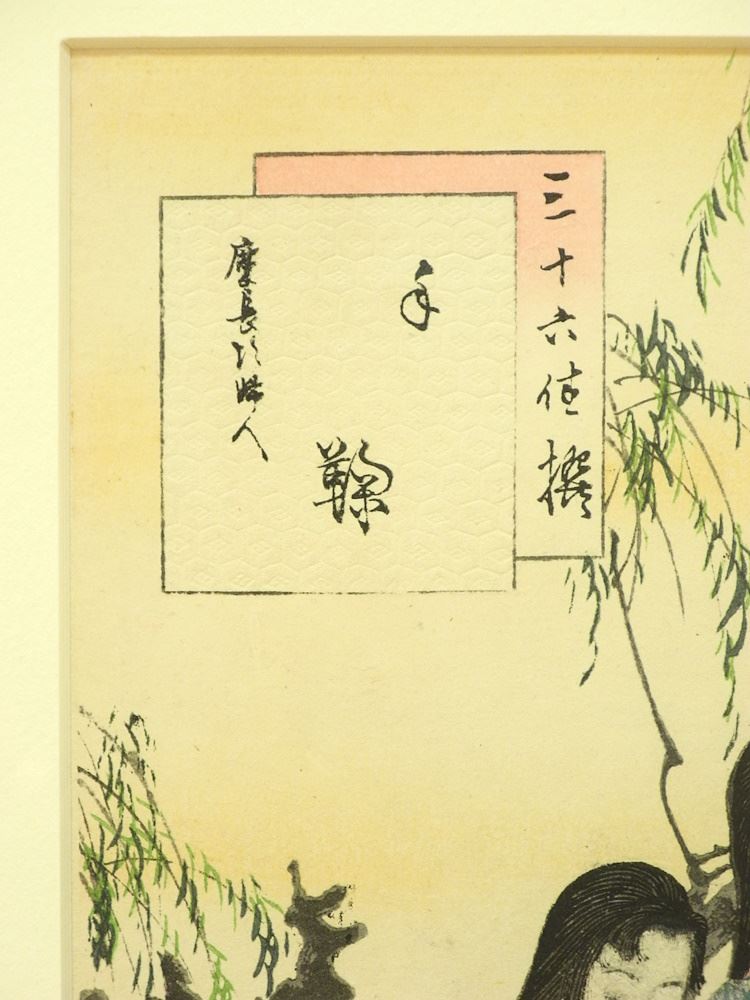 三十六佳撰
手鞠
慶長頃婦人